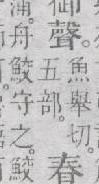 御聲。魚舉切。春
五部。
蒲。舟鮫守之。鮫